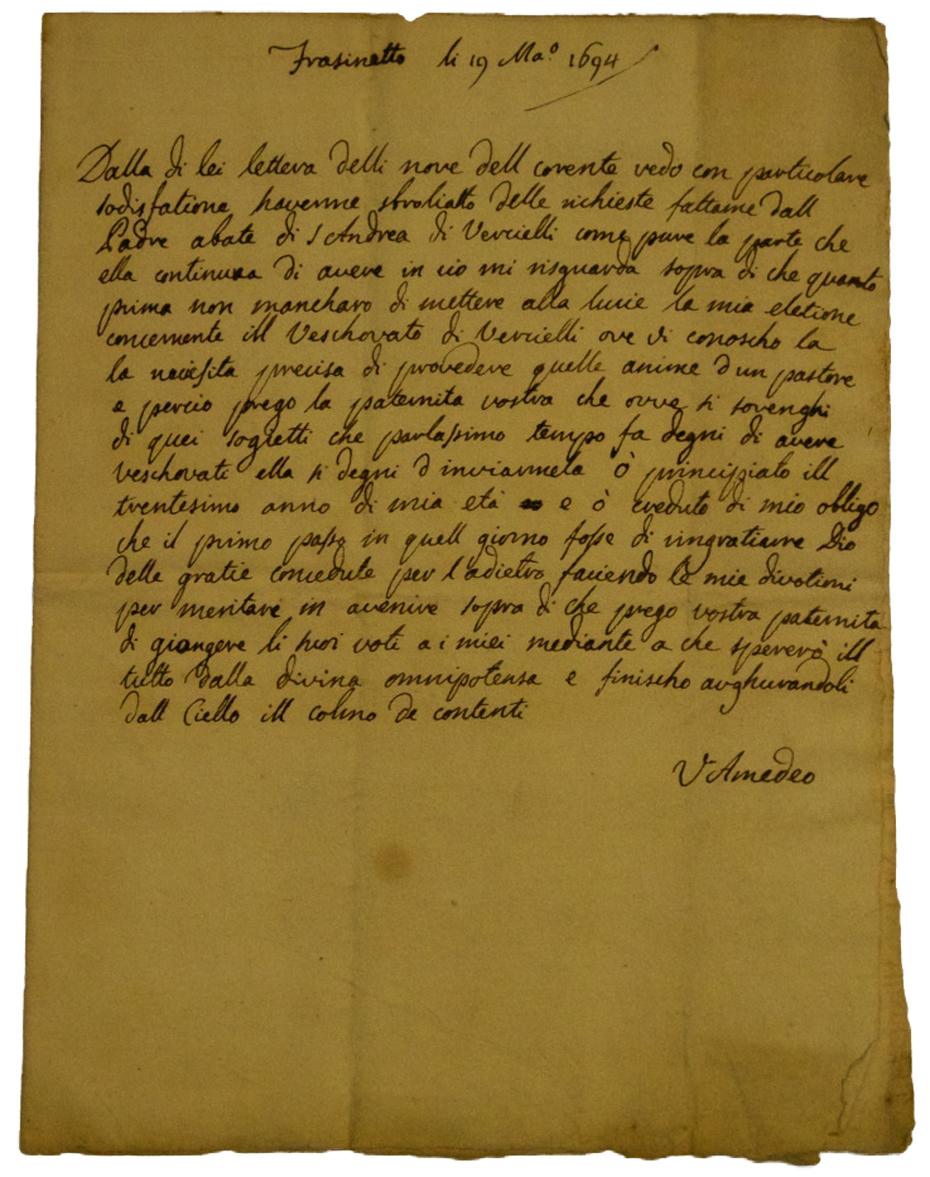 Frasinetto li 19 Ma.º 1694
Dalla di lei lettera delli nove dell corente vedo con particolare
sodisfatione haverme sbroliatto delle richieste fattame dall
Padre abate di S Andrea di Vercielli come pure la parte che
ella continuua di avere in cio mi risguarda sopra di che quanto
prima non mancharo di mettere alla lucie la mia eletione
concernente ill Veschovato di Vercielli ove vi conoscho la
la necessita precisa di provedere quelle anime d un pastore
e percio prego la paternita vostra che ovve si sovenghi
di quei sogietti che parlassimo tempo fa degni di avere
veschovati ella si degni d inviarmela ò principiato ill
trentesimo anno di mia età e ò creduto di mio obligo
che il primo passo in quell giorno fosse di ringratiare Dio
delle gratie concedute per l'adietro faciendo le mie divotioni
per meritare in avenire sopra di che prego vostra paternita
di giongere li suoi voti a i miei mediante a che spererò ill
tutto dalla divina omnipotensa e finischo aughurandoli
dall Ciello ill colmo de contenti
V Amedeo